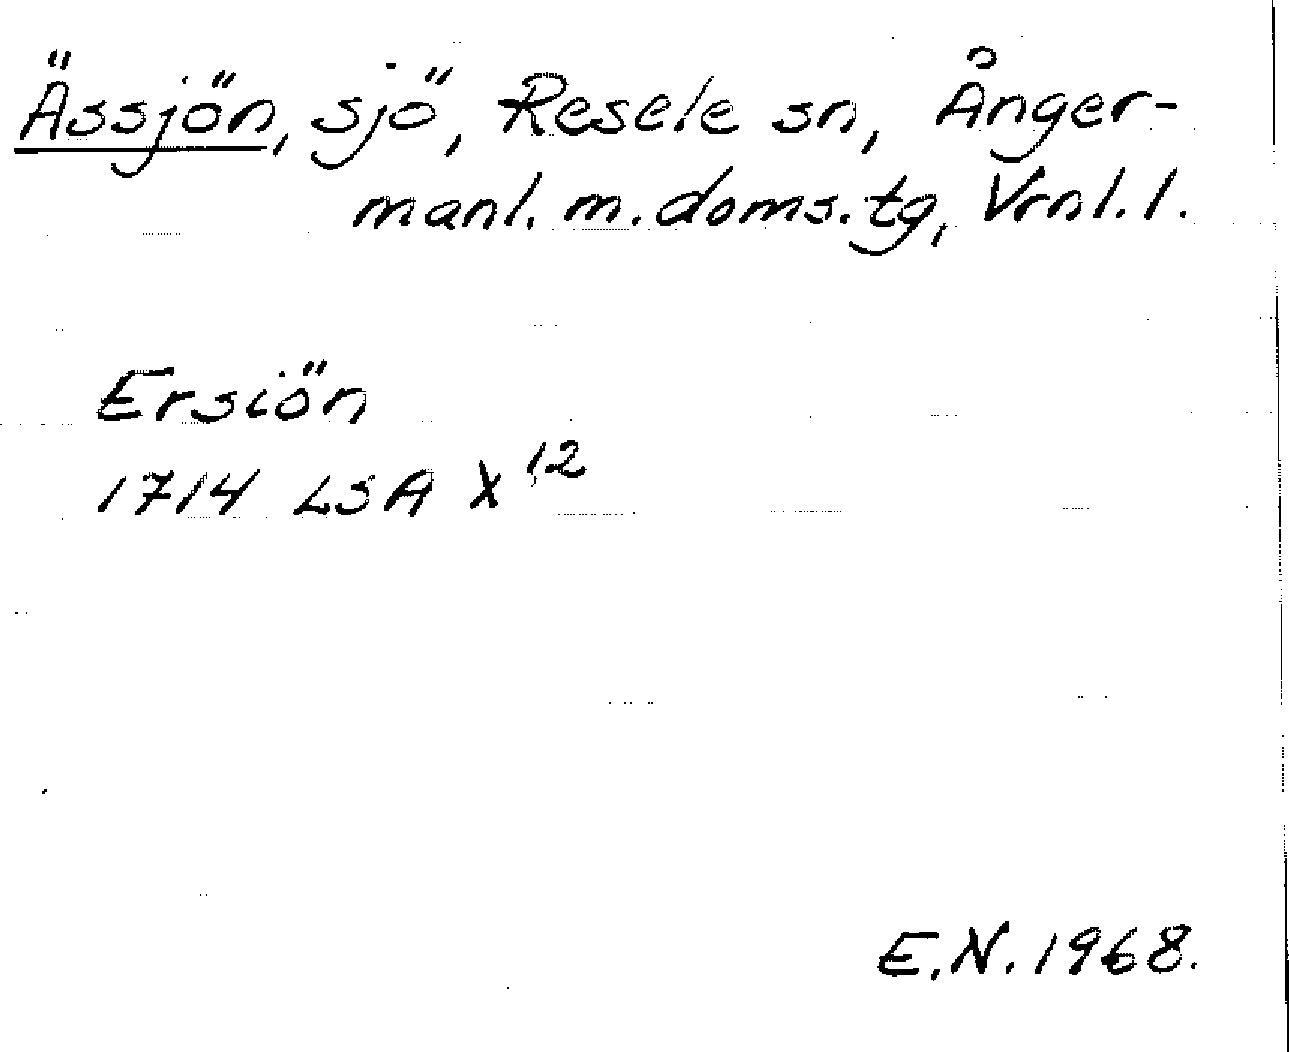 Ässjön, sjö, Resele sn, Ånger-
manl. m. doms. tg, Vrnl. l.
Ersiön
1714 LSA X 12
E.N. 1968.